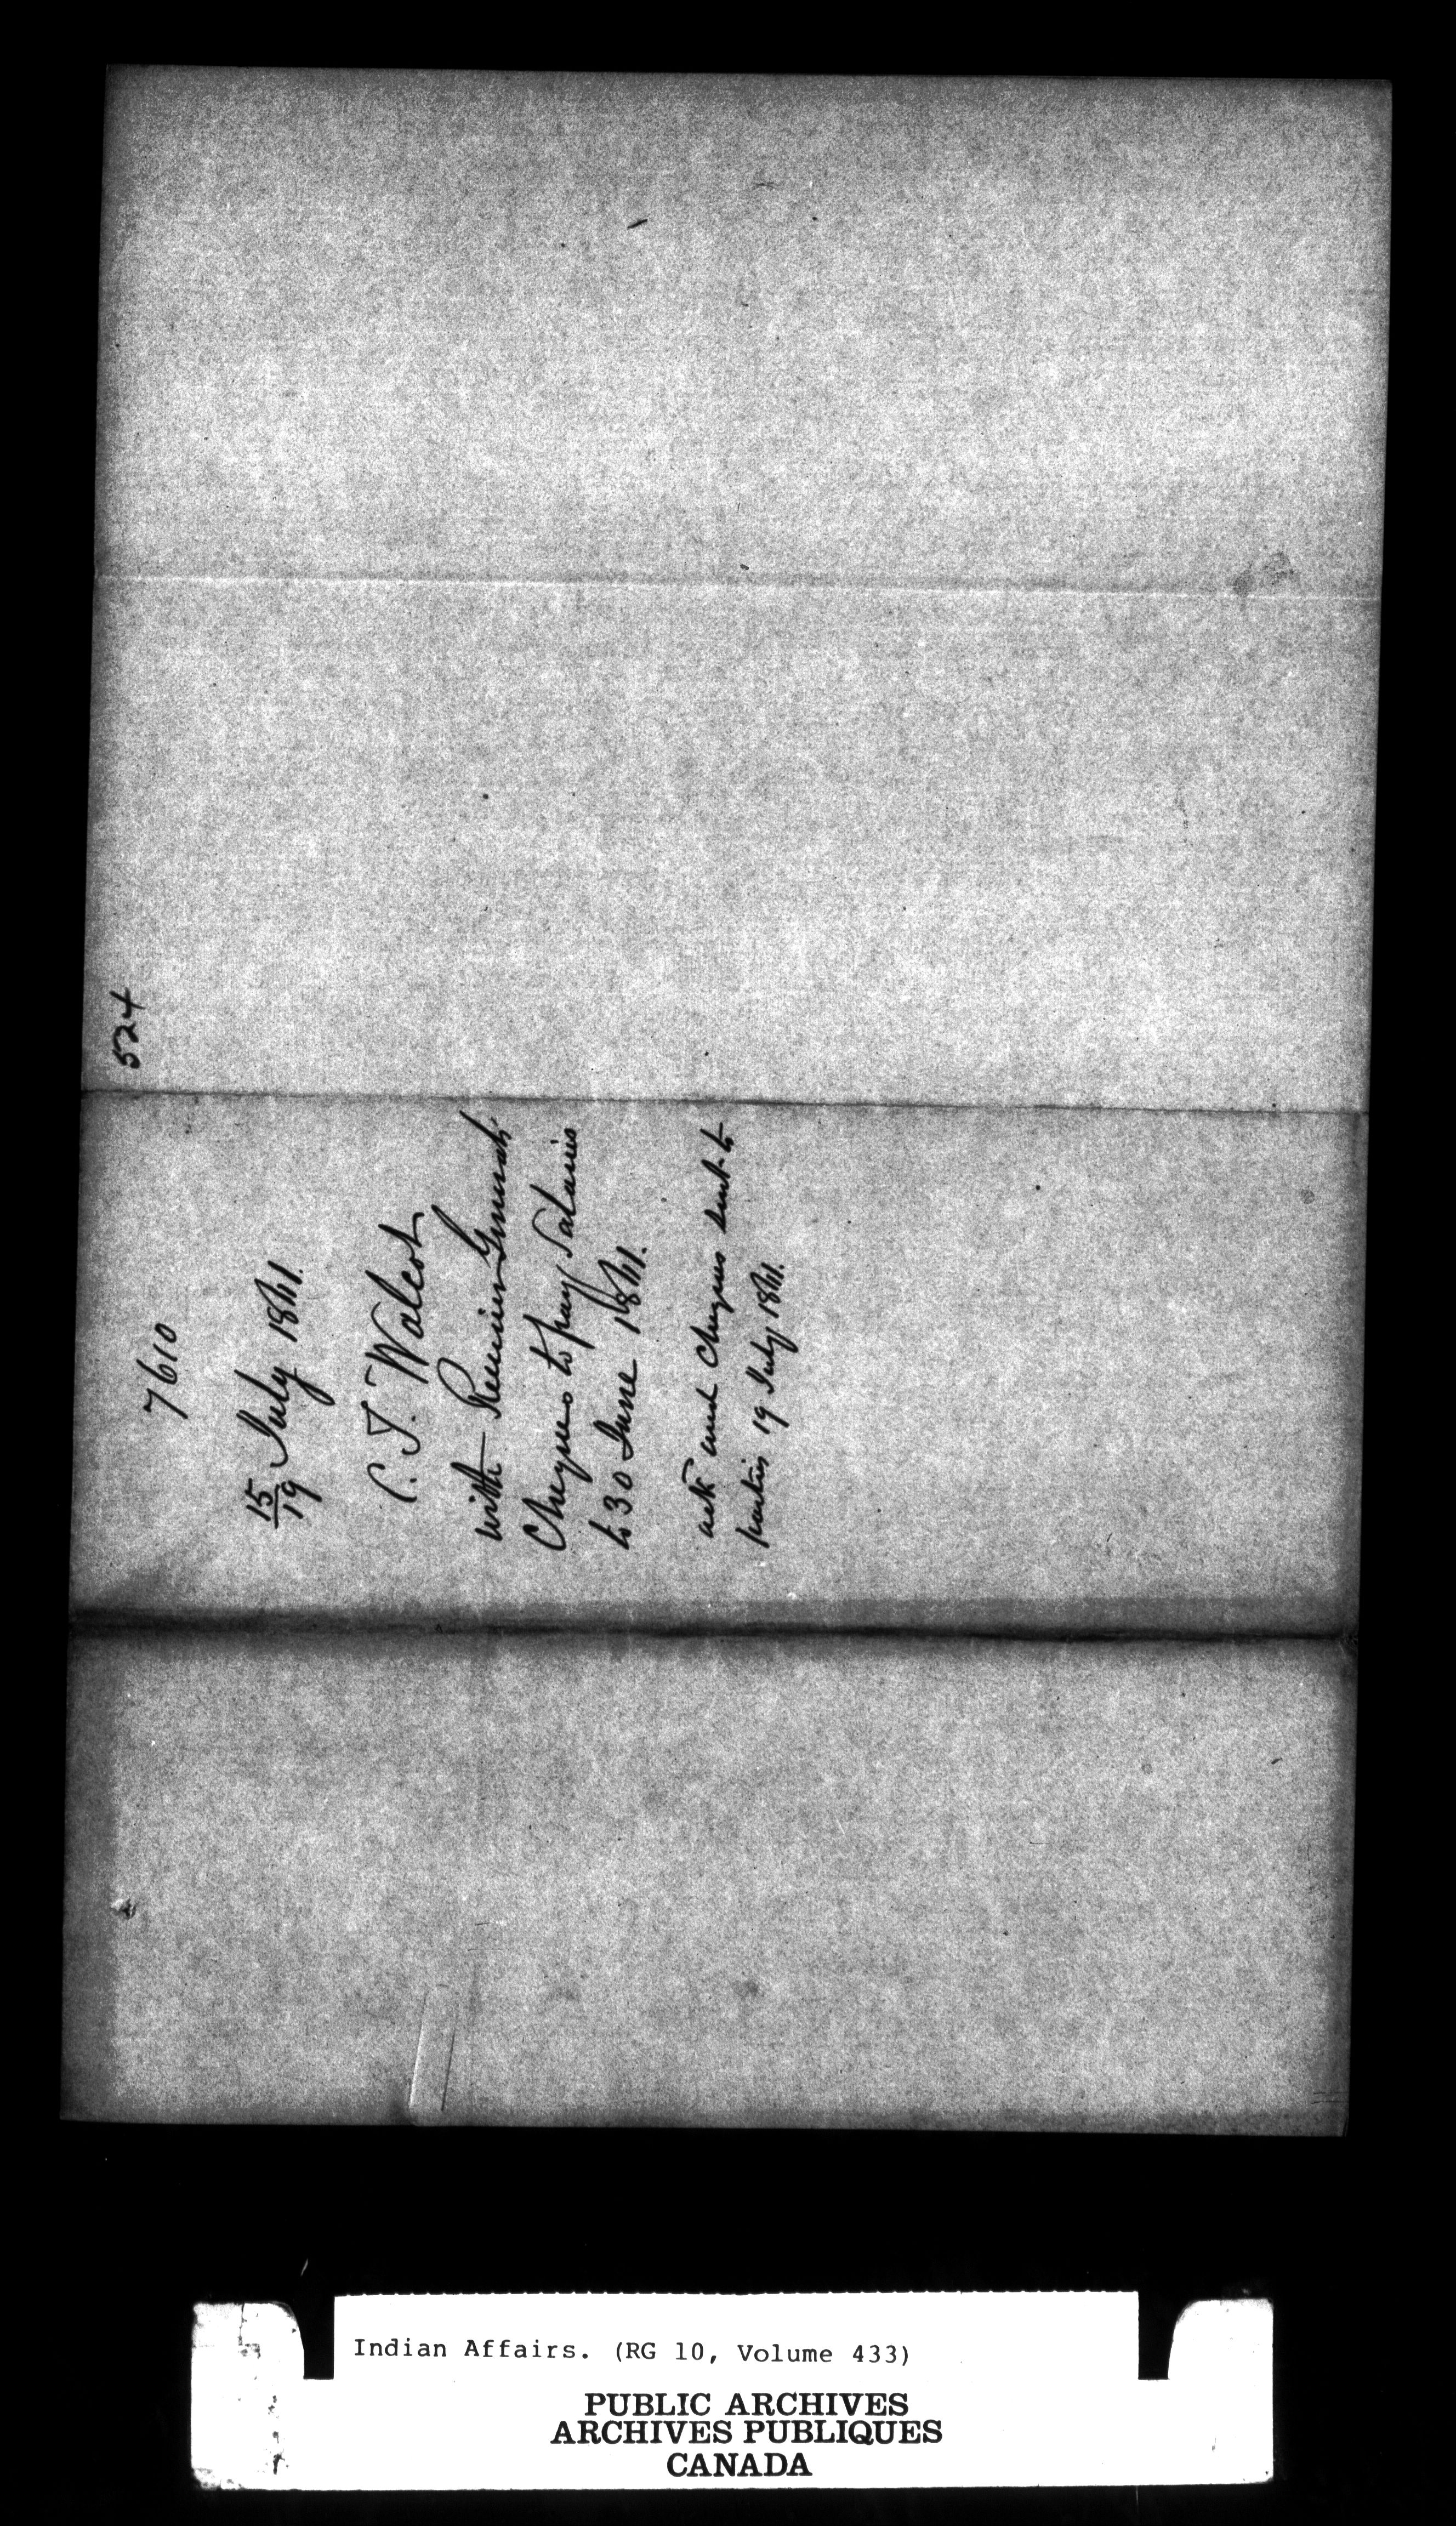 524
7610
15/19 July 1861.
C. T. Walcot
with Receiver Generals
Cheques to pay Salaries
to 30 June 1861.
ack and Cheques sent to
parties 19 July 1861.
Indian Affairs. (RG 10, Volume 433)
PUBLIC ARCHIVES
ARCHIVES PUBLIQUES
CANADA